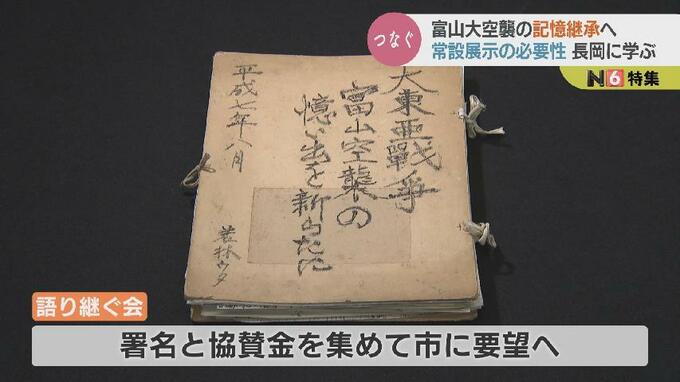 つなぐ
富山大空襲の記憶継承へ
常設展示の必要性 長岡に学ぶ
N6 特集
大東亜戦争
富山空襲の
憶い出を新らたに
平成七年八月
若林ウタ
語り継ぐ会
署名と協賛金を集めて市に要望へ